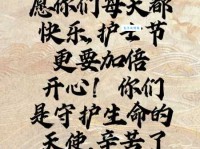 愿你们每天都
快乐,护士节
更要加倍
开心！你们
是守护生命的
天使,辛苦了